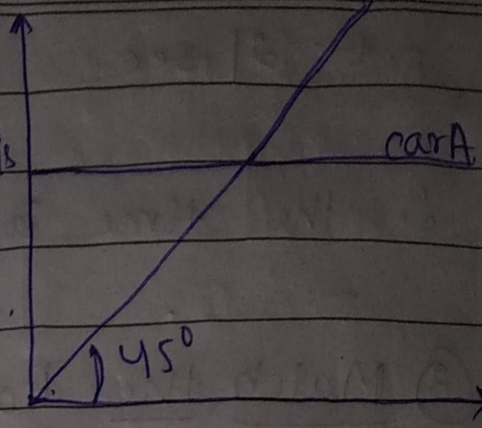 carA
45°